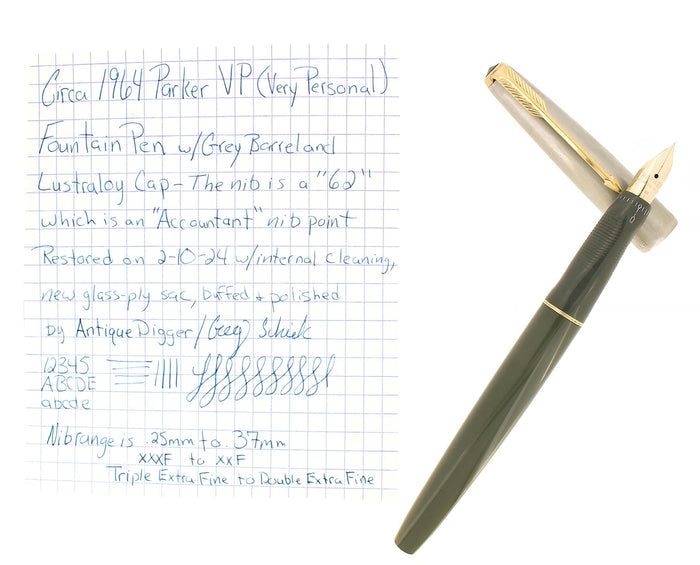 Circa 1964 Parker VP (Very Personal)
Fountain Pen w/Grey Barrel and
Lustraloy Cap - The nib is a "62"
which is an "Accountant" nib point
Restored on 2-10-24 w/internal cleaning,
new glass-ply sac, buffed + polished
by Antique Digger/Greg Schiek
12345
ABCDE
abcde
Nib range is .25mm to .37mm
XXXF to XXF
Triple Extra Fine to Double Extra Fine